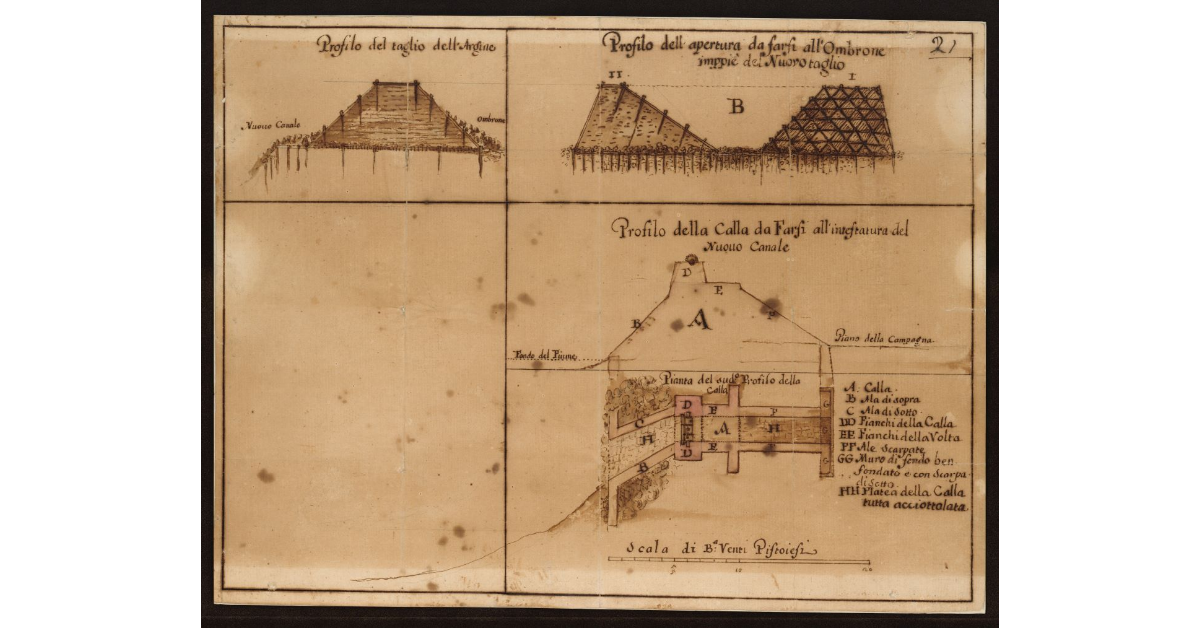 Profilo del taglio dell'Argine
Nuouo Canale
Ombrone
Profilo dell'apertura da farsi all'Ombrone
imppiè del Nuovo taglio
21
II
I
B
Profilo della Calla da Farsi all'intestatura del
Nuouo Canale
D
E
B
A
F
Piano della Campagna
Fondo del Fiume
Pianta del sud.o Profilo della
Calla
D
E
F
G
C
H
A
H
G
B
D
E
F
G
A. Calla.
B Ala di sopra
C Ala di Sotto
DD Fianchi della Calla
EE Fianchi della Volta
FF Ale Scarpate
GG Muro di fondo ben
fondato e con Scarpa
di Sotto
HH Platea della Calla
tutta acciottolata.
Scala di B.a Venti Pistoiesi
5
10
20